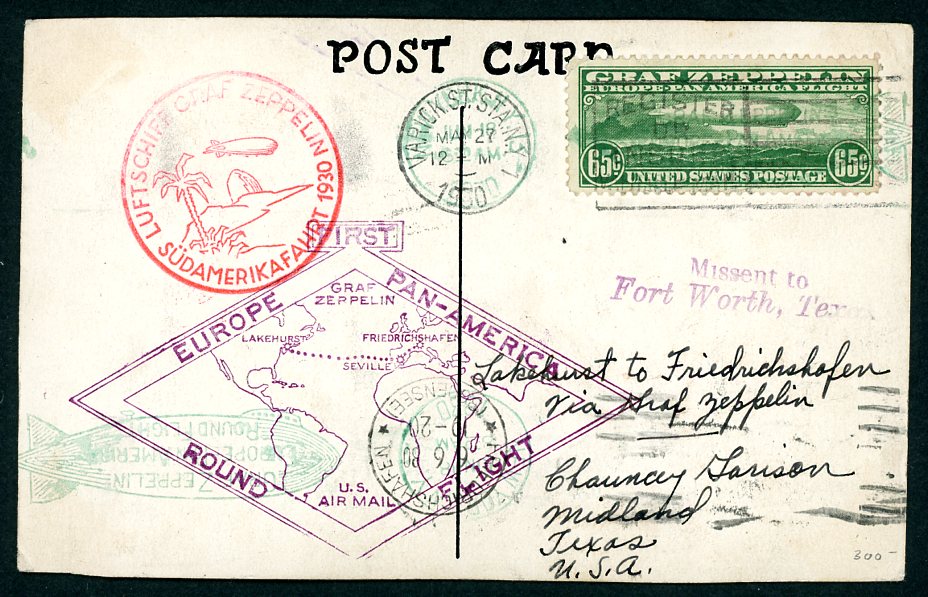 POST CARD
LUFTSCHIFF GRAF ZEPPELIN
SÜDAMERIKAFAHRT 1930
VARICK ST. STA. N.Y.
MAY 27
12 M
1930
GRAF ZEPPELIN
EUROPE-PAN-AMERICA FLIGHT
65c 65c
UNITED STATES POSTAGE
REGISTER
FIRST
EUROPE PAN-AMERICA
GRAF
ZEPPELIN
LAKEHURST FRIEDRICHSHAFEN
SEVILLE
ROUND FLIGHT
U.S.
AIR MAIL
Missent to
Fort Worth, Tex
Lakehurst to Friedrichshafen
via Graf Zeppelin
Chauncey Garison
Midland
Texas
U.S.A.
ZEPPELIN
ROUND FLIGHT
300-